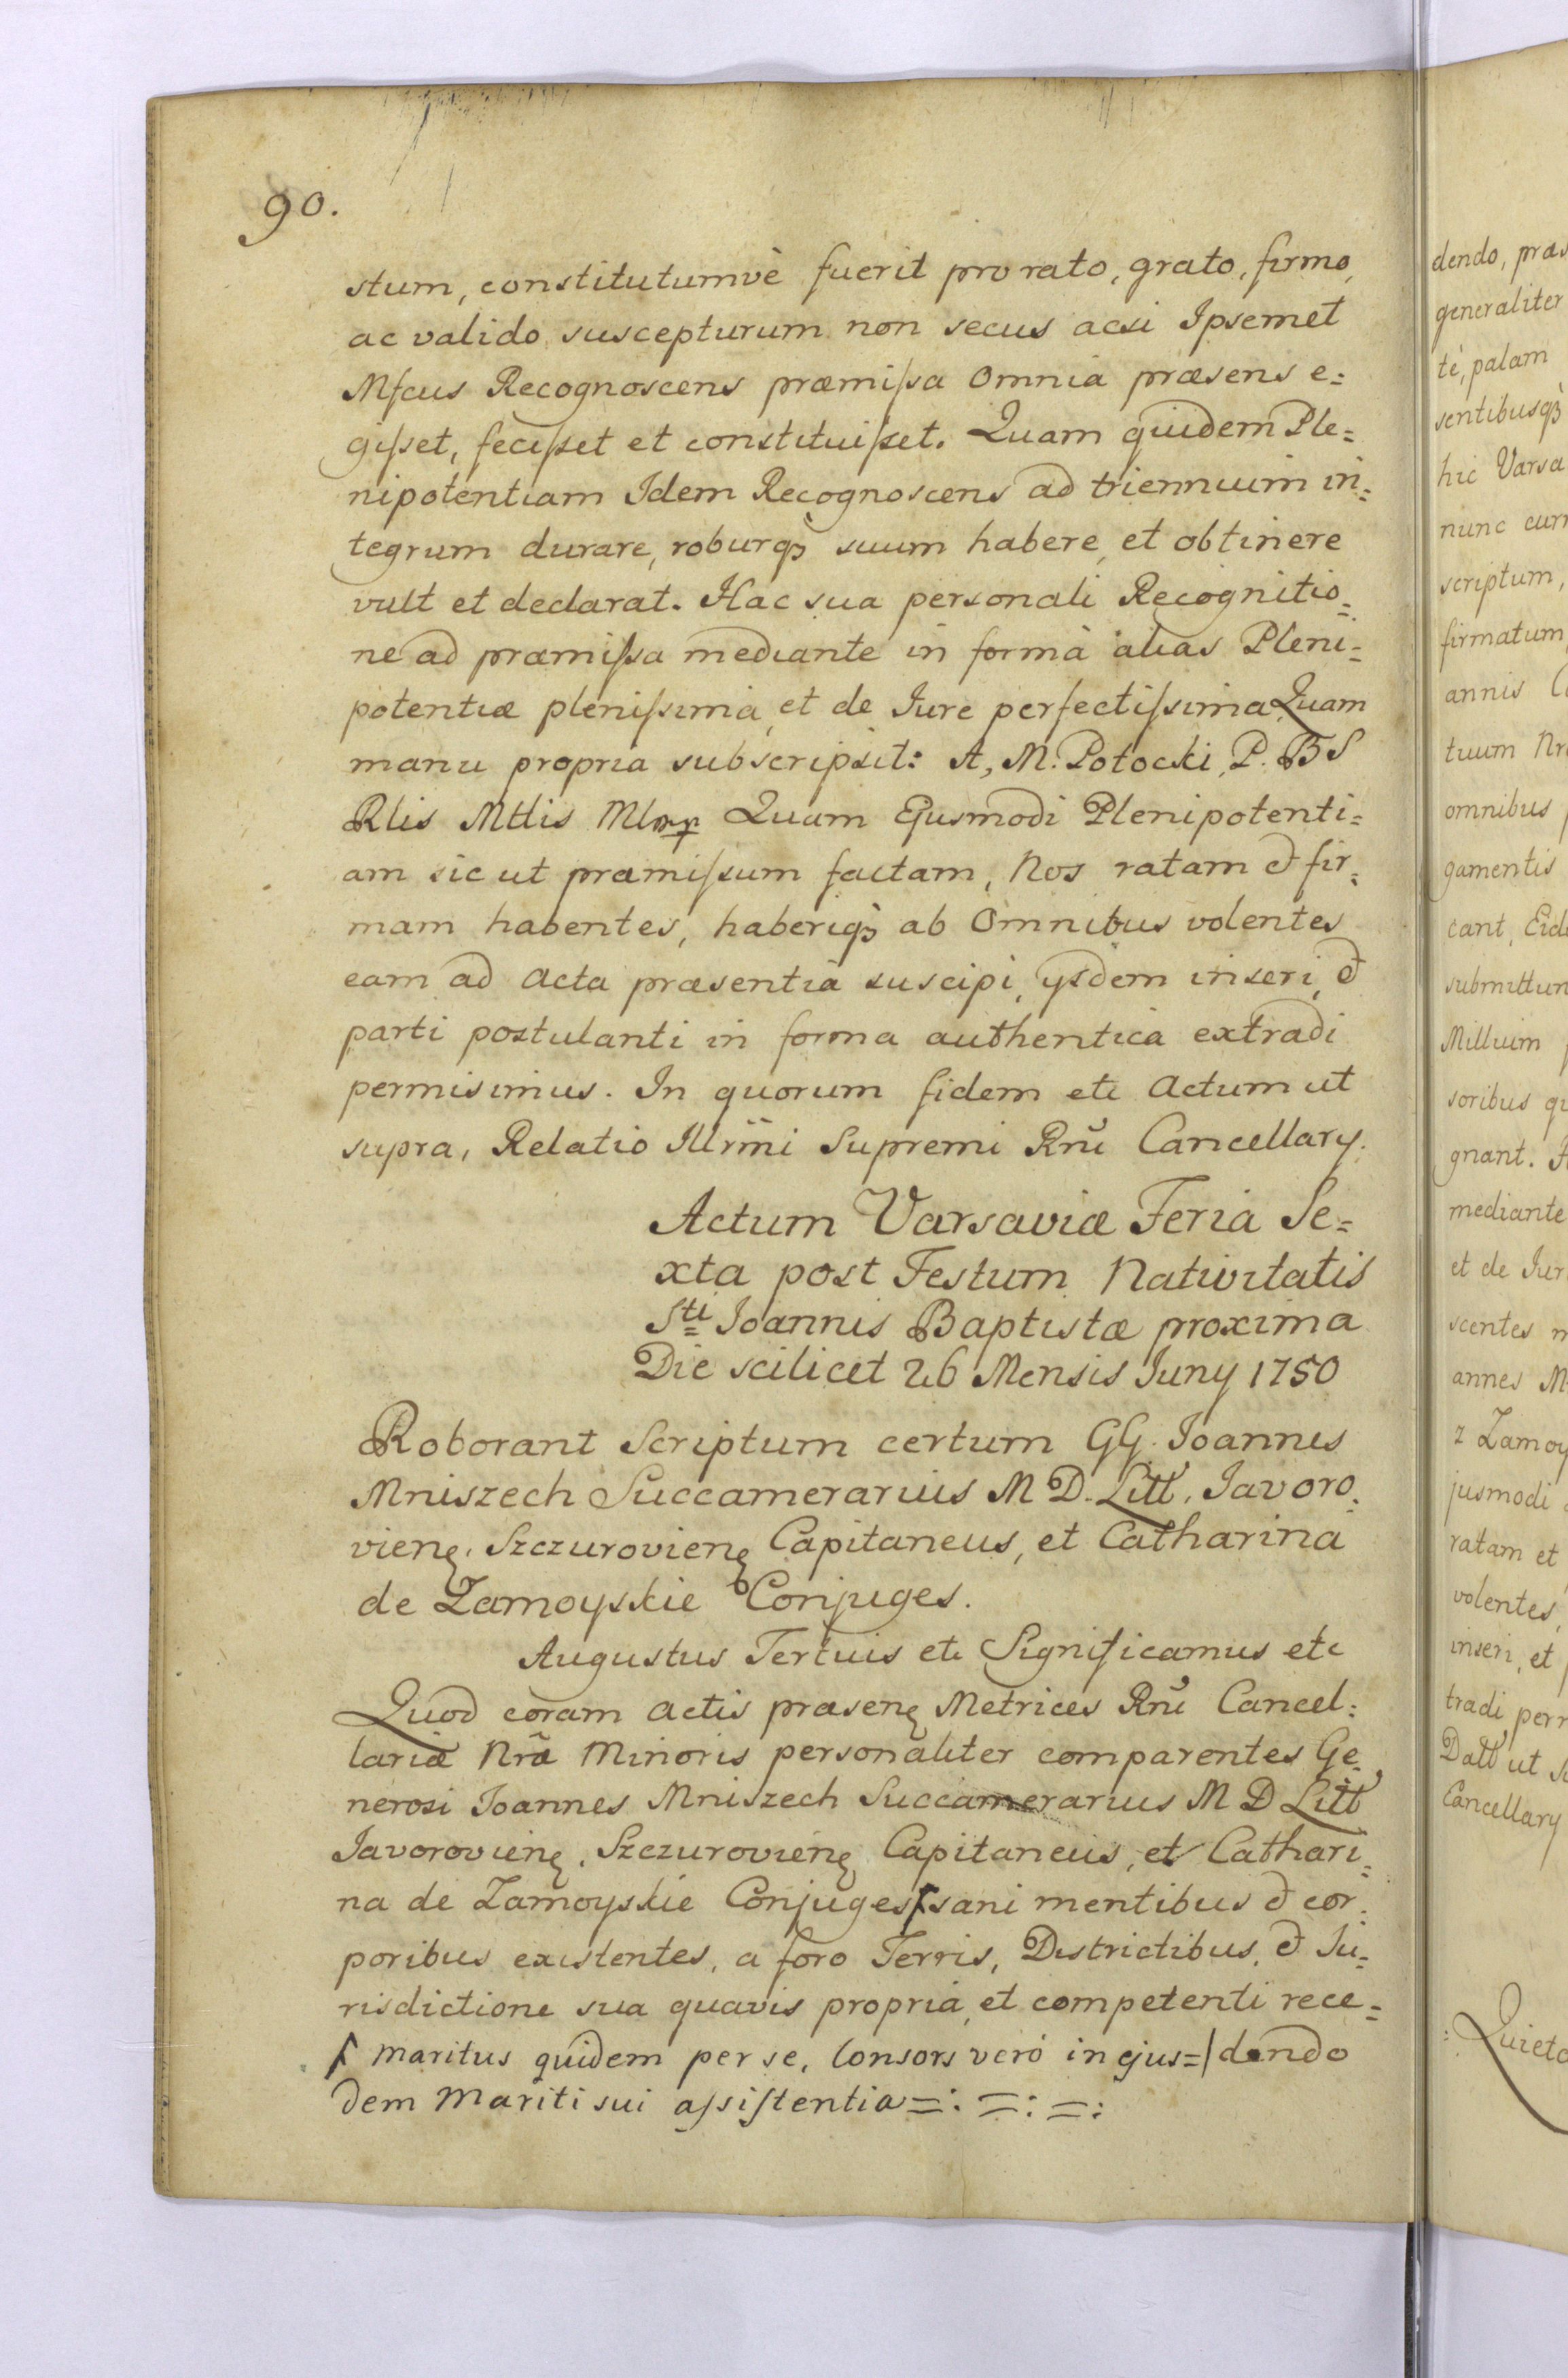 90.
stum, constitutumvè fuerit pro rato, grato, firmo,
ac valido suscepturum non secus acsi Ipsemet
Mfcus Recognoscens præmiſsa Omnia præsens e=
giſset, feciſset et constituiſset. Quam quidem Ple=
nipotentiam Idem Recognoscens ad triennium in=
tegrum durare, roburqꝫ suum habere, et obtinere
vult et declarat. Hac sua personali Recognitio=
ne ad præmiſsa mediante in formà alias Pleni=
potentiæ pleniſsima, et de Iure perfectiſsima Quam
manu propria subscripsit: A, M. Potocki, P. B S
Rlis Mttis Mlo Quam Ejusmodi Plenipotenti=
am sic ut præmiſsum factam, Nos ratam & fir=
mam habentes, haberiqꝫ ab Omnibus volentes
eam ad Acta præsentia suscipi, ysdem inseri, &
parti postulanti in forma authentica extradi
permisimus. In quorum fidem etc Actum ut
supra, Relatio Illrmi Supremi Rnĩ Cancellary.
Actum Varsaviæ Feria Se=
xta post Festum Nativitatis
Sti Ioannis Baptistæ proxima
Die scilicet 26 Mensis Iuny 1750
Roborant Scriptum certum GG. Ioannes
Mniszech Succamerarius M D. Litt, Iavoro=
vienę, Szczurovienę Capitaneus, et Catharina
de Zamoyskie Conjuges.
Augustus Tertius etc Significamus etc
Quod coram Actis præsenę Metrices Rnĩ Cancel=
lariæ Nræ̃ Minoris personaliter comparentes Ge=
nerosi Ioannes Mniszech Succamerarius M D Litt
Iavorovienę, Szczurovienę Capitaneus, et Cathari=
na de Zamoyskie Conjuges ſ sani mentibus & cor=
poribus existentes, a foro Terris, Districtibus, & Iu=
risdictione sua quavis propria, et competenti rece=
ſ maritus quidem per se, Consors verò in ejus=/ dendo
dem Mariti sui aſsiſtentia =: =: =:
dendo, præs
generaliter
tè, palam
sentibusqꝫ
hic Varsa
nunc curr
scriptum,
firmatum
annis C
tuum Nr
omnibus
gamentis
cant, Eid
submittun
Millium
soribus qu
gnant.
mediante
et de Iur
scentes
annes M
z Zamoy
jusmodi
ratam et
volentes,
inseri, et
tradi perm
Datt ut
Cancellary
Quieta